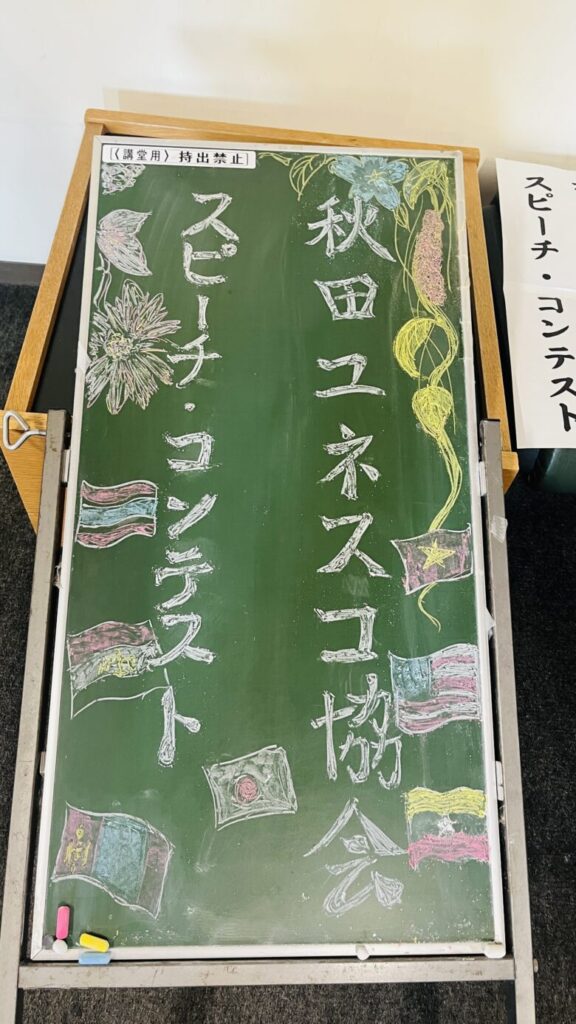 [〈講堂用〉持出禁止]
秋田ユネスコ協会
スピーチ・コンテスト
スピーチ・コンテスト